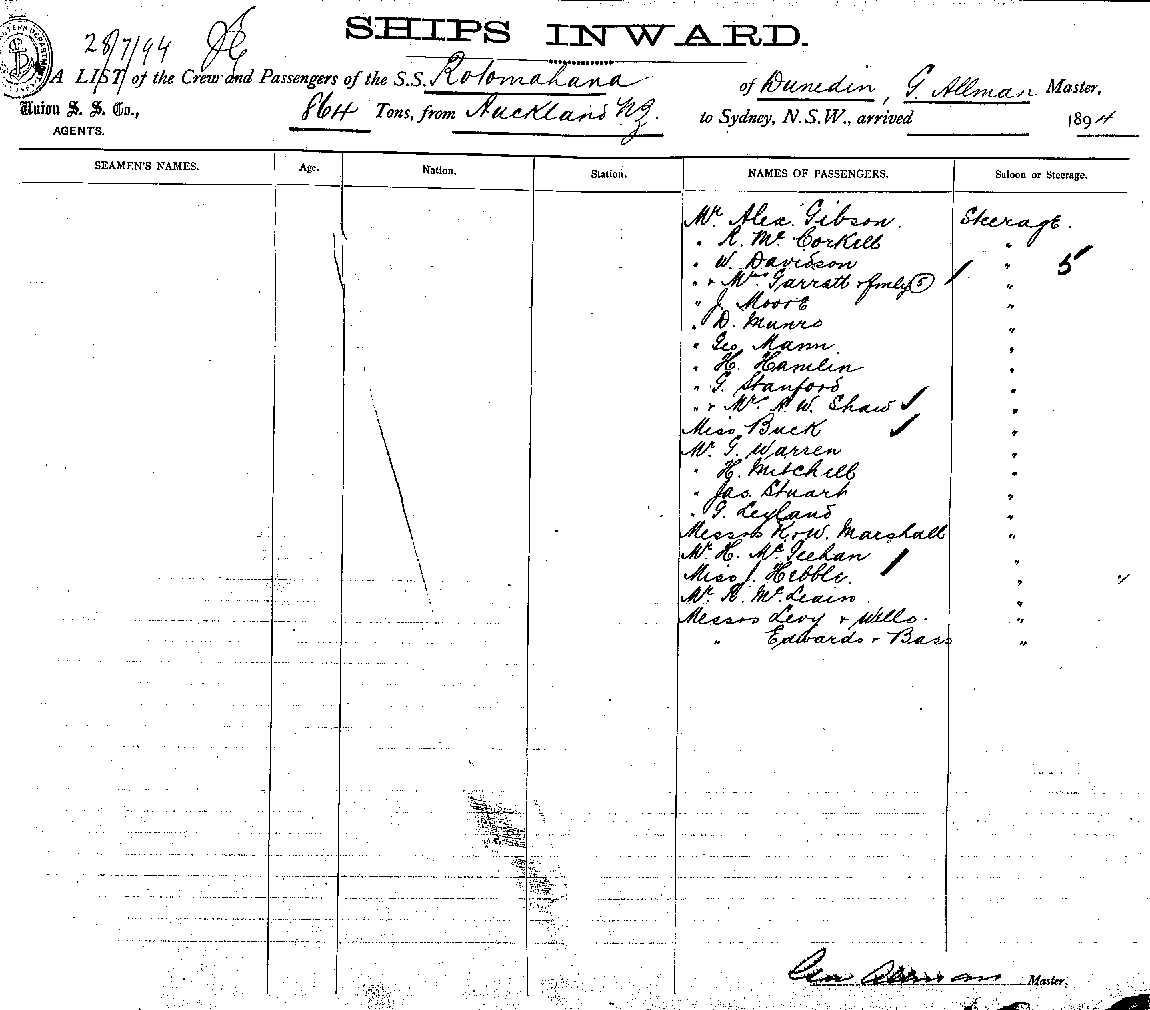 SHIPS INWARD.
28/7/94
A LIST of the Crew and Passengers of the S.S. Rotomahana of Dunedin, G. Allman Master,
Union S. S. Co., 864 Tons, from Auckland NZ. to Sydney, N.S.W., arrived 1894
AGENTS.
SEAMEN'S NAMES. Age. Nation. Station. NAMES OF PASSENGERS. Saloon or Steerage.
Mr. Alex. Gibson. Steerage.
" R. Mc Corkill "
" W. Davidson " 5
" + Mrs Garratt + fmly (5) "
" J. Moore "
" D. Munro "
" Geo Mann "
" H. Hamlin "
" G. Stanford "
" + Mrs A. W. Shaw "
Miss Buck "
Mr. G. Warren "
" H. Mitchell "
" Jas. Stuart "
" G. Leyland "
Messrs R + W. Marshall "
Mr. H. Mc Geehan "
Miss J. Hebble. "
Mr. R. Mc Leain "
Messrs Levy + Wells. "
" Edwards + Bass "
Geo Allman Master.